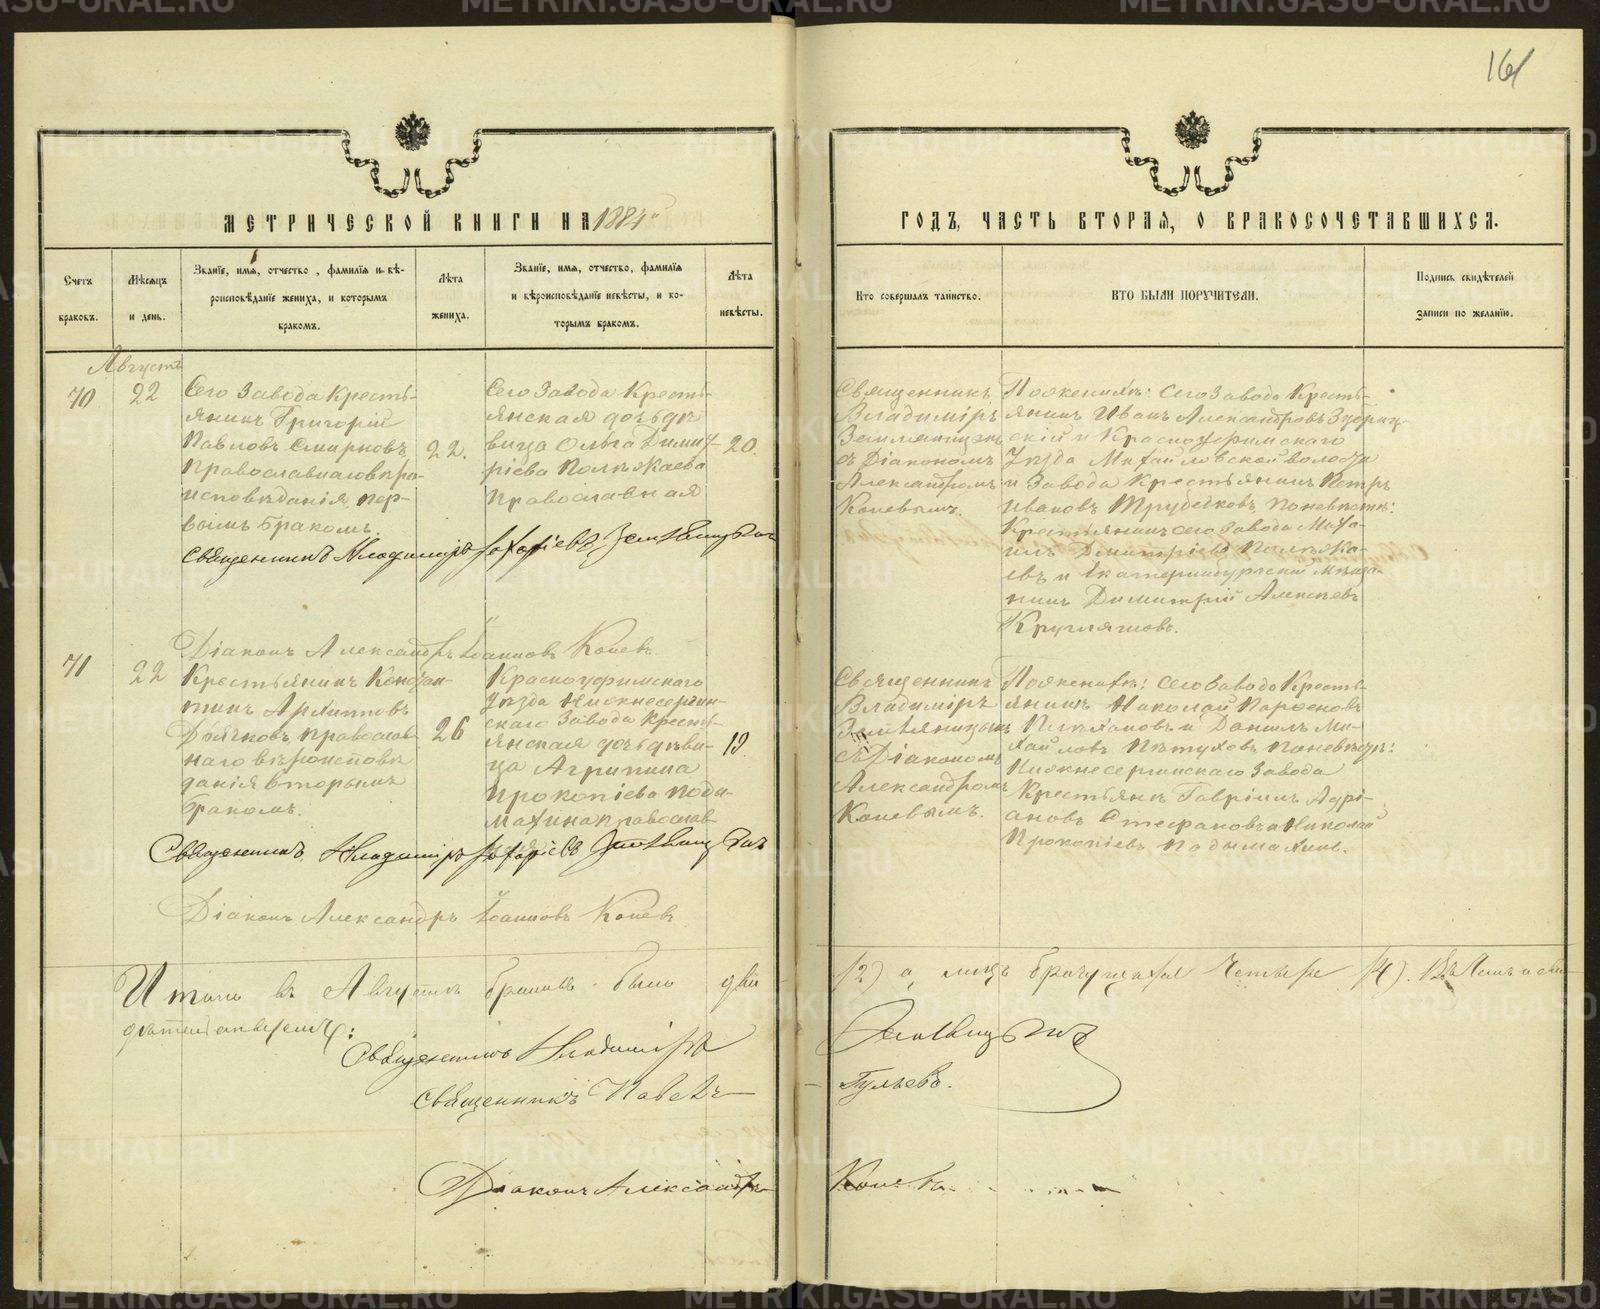 161
МЕТРИЧЕСКОЙ КНИГИ НА 1884
ГОДЪ, ЧАСТЬ ВТОРАЯ, О БРАКОСОЧЕТАВШИХСЯ.
Счетъ браковъ.
Мѣсяцъ и день.
Званіе, имя, отчество, фамилія и вѣ-
роисповѣданіе жениха, и которымъ
бракомъ.
Лѣта
жениха.
Званіе, имя, отчество, фамилія
и вѣроисповѣданіе невѣсты, и ко-
торымъ бракомъ.
Лѣта
невѣсты.
Кто совершалъ таинство.
КТО БЫЛИ ПОРУЧИТЕЛИ.
Подпись свидѣтелей
записи по желанію.
Августъ
70
22
Сего Завода Кресть-
янинъ Григорій
Павловъ Смирновъ
православнаго вѣро-
исповѣданія, пер-
вымъ бракомъ
22.
Сего Завода Кресть-
янская дочь дѣ-
вица Ольга Димит-
ріева Полѣжаева
православная
20.
Священникъ
Владиміръ
Земляницынъ
съ Діакономъ
Александромъ
Коневымъ.
По женихѣ: Сего Завода Кресть-
янинъ Иванъ Александровъ
и Красноуфимскаго
Уѣзда Михайловской волости
и Завода Крестьянинъ Петръ
Ивановъ Трубѣевъ по невѣстѣ:
Крестьянинъ сего Завода Миха-
илъ Димитріевъ Полѣжа-
евъ и Екатеринбургскій Мѣща-
нинъ Димитрій Алексѣевъ
Кругляшовъ.
Священникъ Владиміръ Захаріевъ Земляницынъ
Діаконъ Александръ Іоанновъ Коневъ
71
22
Крестьянинъ Констан-
тинъ Архиповъ
православ
наго вѣроисповѣ
данія вторымъ
бракомъ.
26
Красноуфимскаго
Уѣзда Нижнесергин-
скаго Завода Кресть-
янская дочь дѣви-
ца Агрипина
Прокопіева Поды-
махина православ
19
Священникъ
Владиміръ
Земляницынъ
съ Діакономъ
Александромъ
Коневымъ.
По женихѣ: Сего Завода Кресть-
янинъ Николай Парфеновъ
Плѣхановъ и Данилъ Ми-
хайловъ Пѣтуховъ по невѣстѣ:
Нижнесергинскаго Завода
Крестьяне Гавріилъ Адрі-
ановъ Стефановъ и Николай
Прокопіевъ Подымахинъ.
Священникъ Владиміръ Захаріевъ Земляницынъ
Діаконъ Александръ Іоанновъ Коневъ
Итого въ Августѣ браковъ было два (2) а лицъ брачущихся Четыре (4).
Священникъ Владиміръ Земляницынъ
Священникъ Павелъ Гуляевъ.
Діаконъ Александръ Коневъ
METRIKI.GASO-URAL.RU